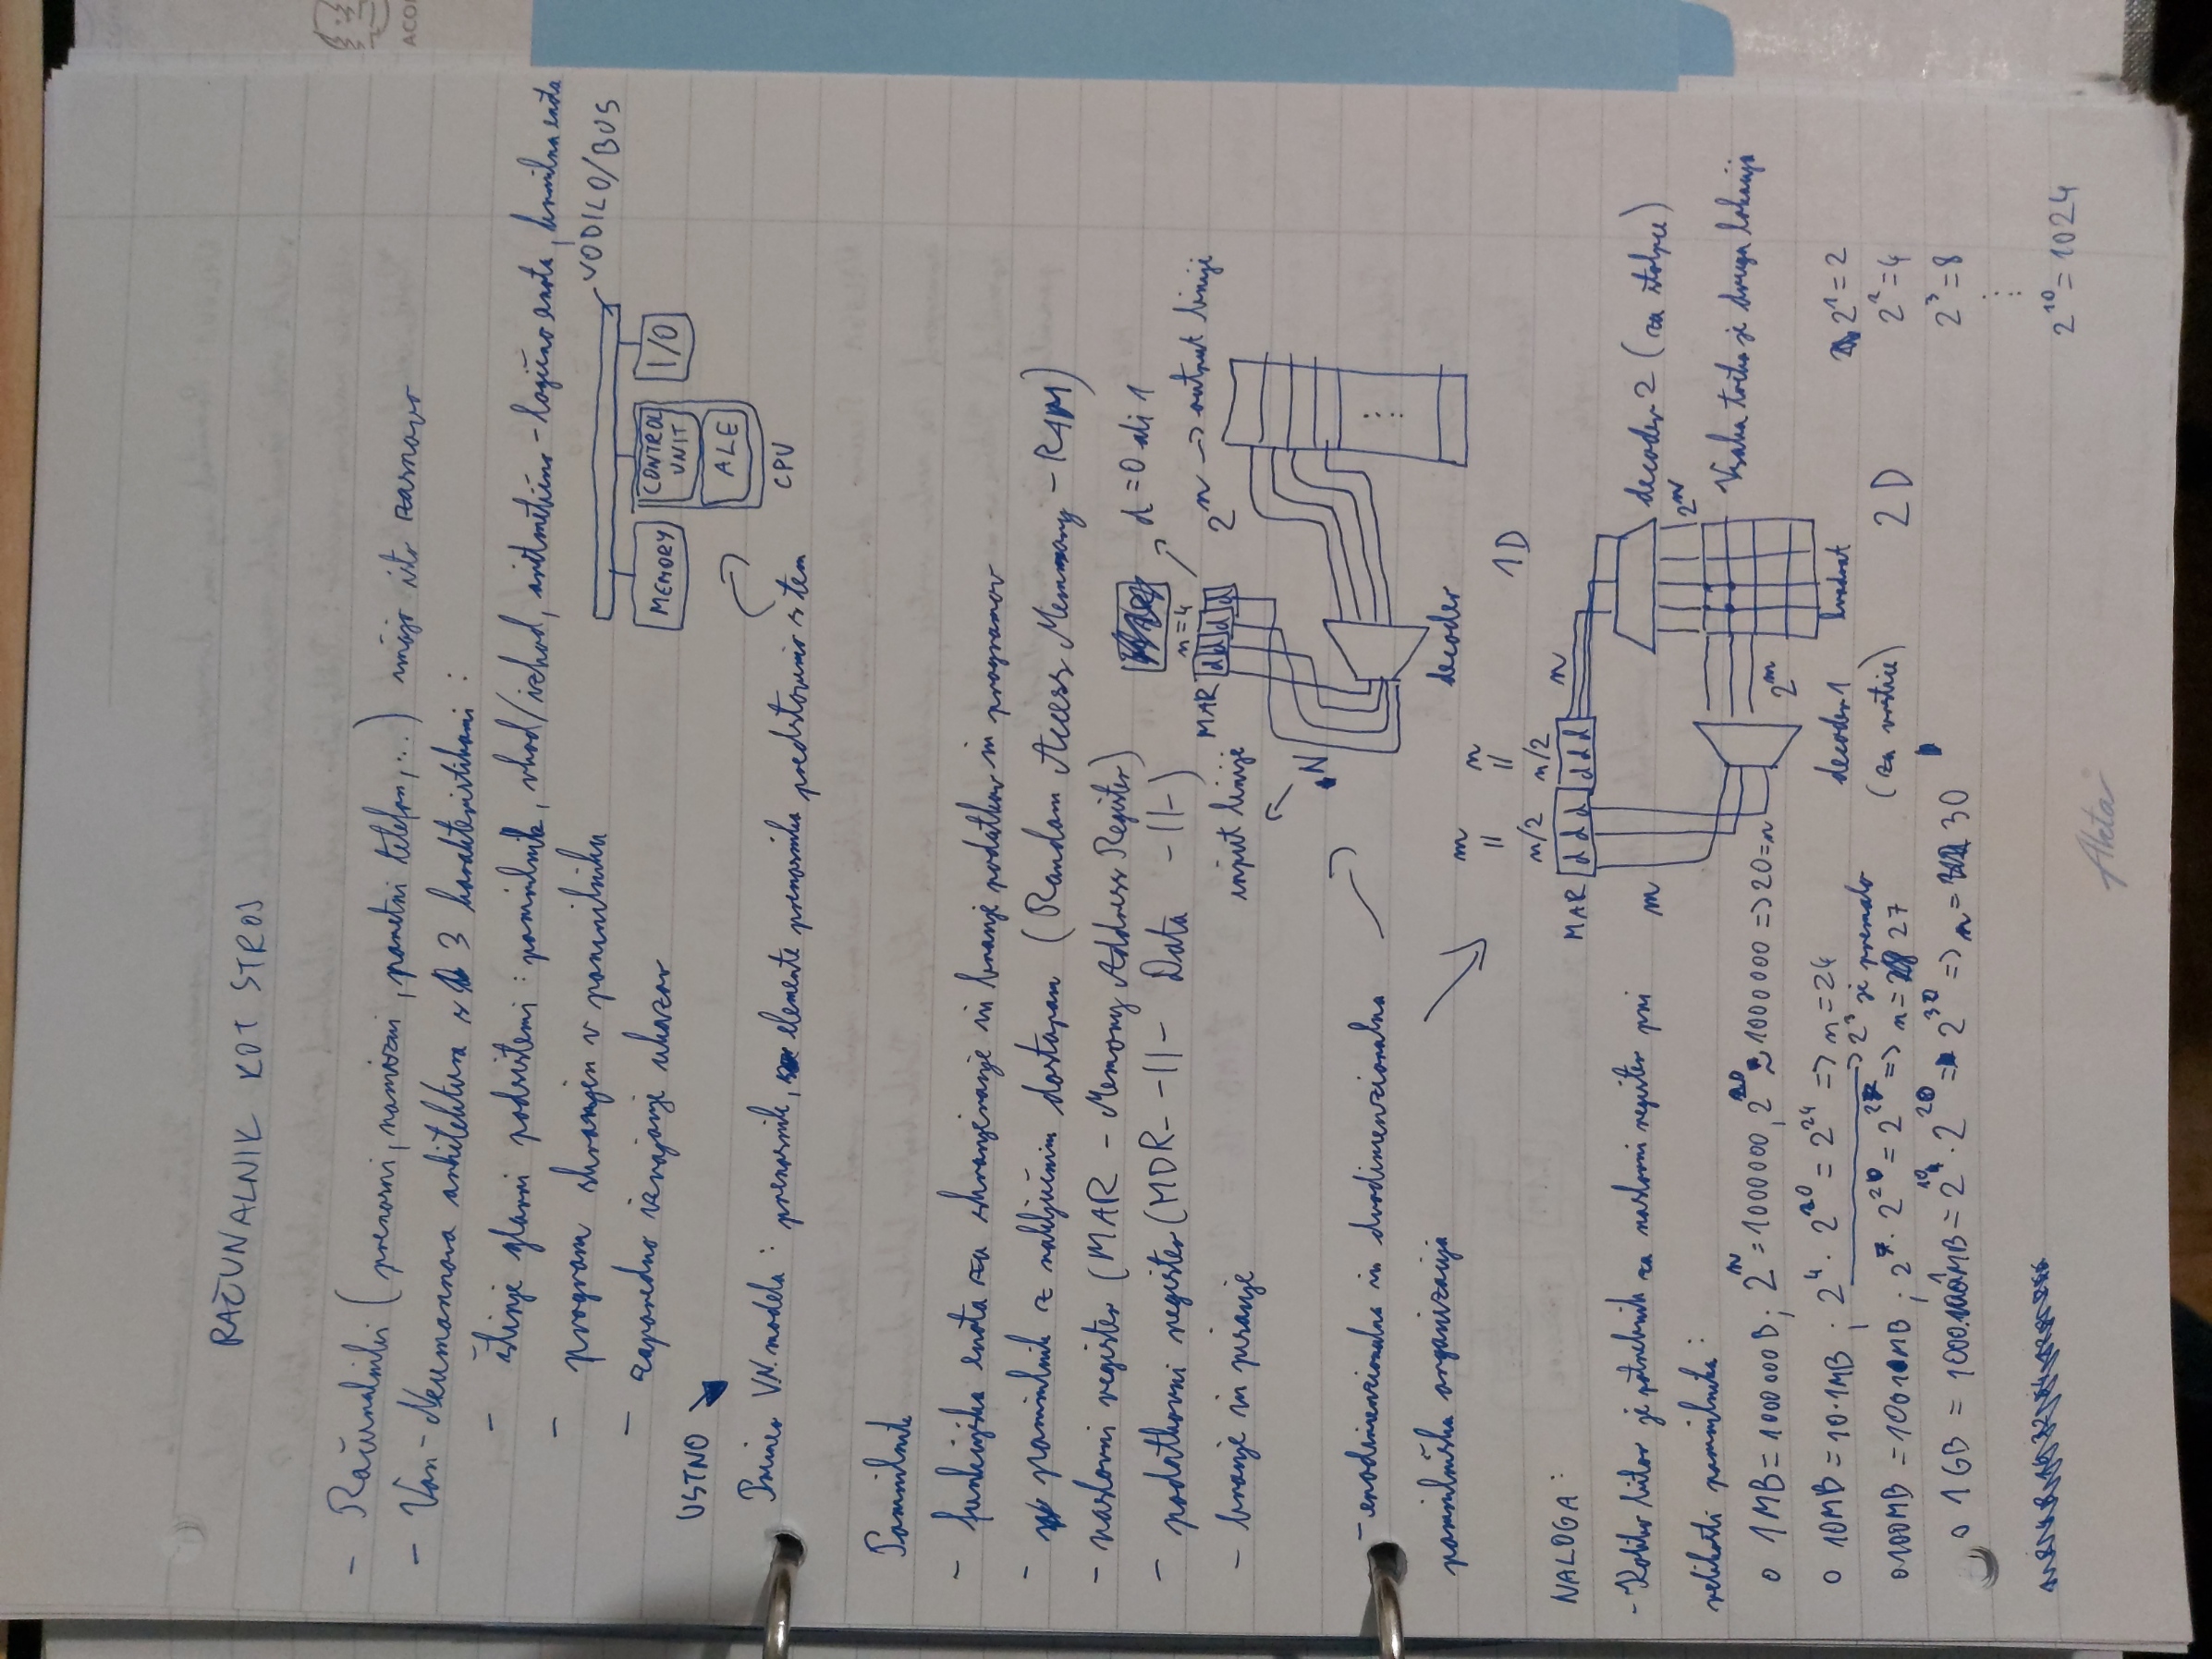 RAČUNALNIK KOT STROJ
- Računalniki (prenosni, namizni, pametni telefon,...) imajo isto zasnovo
- Von-Neumannova arhitektura s 3 karakteristikami:
- štirje glavni podsistemi: pomnilnik, vhod/izhod, aritmetično-logična enota, krmilna enota
- program shranjen v pomnilniku
- zaporedno izvajanje ukazov
VODILO/BUS
MEMORY
CONTROL UNIT
I/O
ALE
CPU
USTNO
Primer V.N. modela: prenosnik, elemente prenosnika predstavimo s tem
Pomnilnik
- funkcijska enota za shranjevanje in branje podatkov in programov
- pomnilnik z naključnim dostopom (Random Access Memmory - RAM)
- naslovni register (MAR - Memory Address Register)
- podatkovni register (MDR- -||- Data -||-)
- branje in pisanje
d = 0 ali 1
n=4
MAR d d d d
2^n -> output linije
input linije
N
decoder
1D
- enodimenzionalna in dvodimenzionalna
pomnilniška organizacija
m n
|| ||
n/2 n/2
MAR d d d d d d
n
m
decoder 2 (za stolpce)
2^n
Vsaka točka je druga lokacija
2^m
decoder 1
(za vrstice)
kvadrat
2D
NALOGA:
- Koliko bitov je potrebnih za naslovni register pri
velikosti pomnilnika:
o 1MB = 1000000B; 2^n = 1000000, 2^20 ≈ 1000000 => 20=n
o 10MB = 10·1MB; 2^4 · 2^20 = 2^24 => n=24
-> 2^3 je premalo
o 100MB = 100·1MB; 2^7 · 2^20 = 2^27 => n= 27
o 1GB = 1000·1MB = 2^10 · 2^20 = 2^30 => n= 30
2^1 = 2
2^2 = 4
2^3 = 8
⋮
2^10 = 1024
Akta
ACO